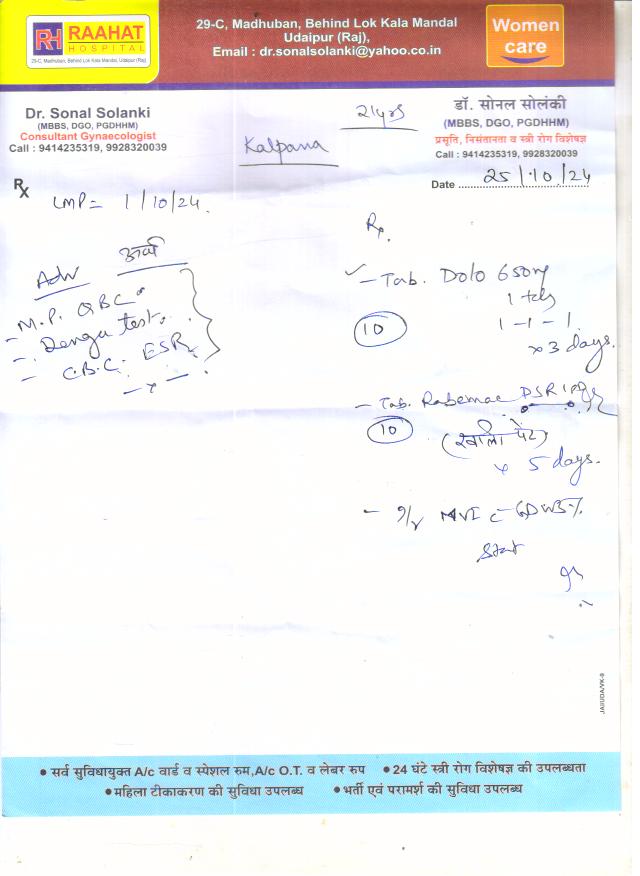 RH RAAHAT
HOSPITAL
29-C, Madhuban, Behind Lok Kala Mandal, Udaipur (Raj)
29-C, Madhuban, Behind Lok Kala Mandal
Udaipur (Raj),
Email : dr.sonalsolanki@yahoo.co.in
Women
care
Dr. Sonal Solanki
(MBBS, DGO, PGDHHM)
Consultant Gynaecologist
Call : 9414235319, 9928320039
21yrs
Kalpana
डॉ. सोनल सोलंकी
(MBBS, DGO, PGDHHM)
प्रसूति, निसंतानता व स्त्री रोग विशेषज्ञ
Call : 9414235319, 9928320039
Date 25/10/24
Rx
LMP = 1/10/24.
Adv
- M.P. QBC
- Dengu test.
- C.B.C. ESR
- x -
Rx.
- Tab. Dolo 650mg
1 tds
10
1 - 1 - 1
x 3 days.
- Tab. Rabemac DSR
10
(खाली पेट)
x 5 days.
- MVI c̄ 5%
Stat
JAI/UDA/VK-9
• सर्व सुविधायुक्त A/c वार्ड व स्पेशल रुम,A/c O.T. व लेबर रुप • 24 घंटे स्त्री रोग विशेषज्ञ की उपलब्धता
• महिला टीकाकरण की सुविधा उपलब्ध • भर्ती एवं परामर्श की सुविधा उपलब्ध